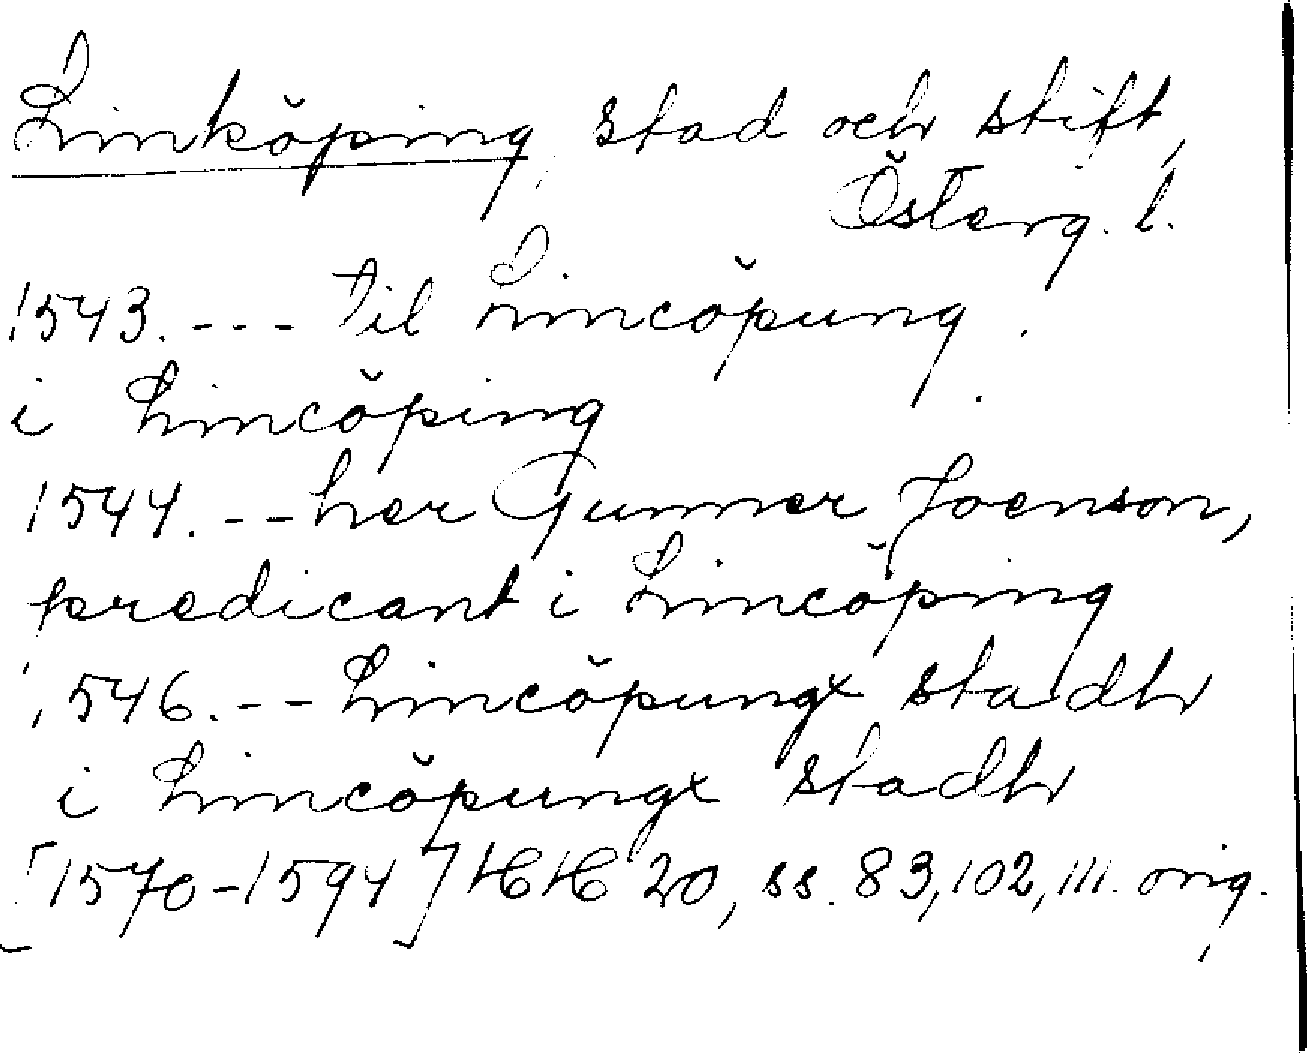 Linköping, stad och stift,
Österg. l.
1543. --- til Lincöpung.
i Lincöping
1544. -- her Gunner Joenson,
predicant i Lincöping
1546. -- Lincöpungx stadh
i Lincöpungx stadh
[1570-1594] HH 20, ss. 83, 102, 111. orig.